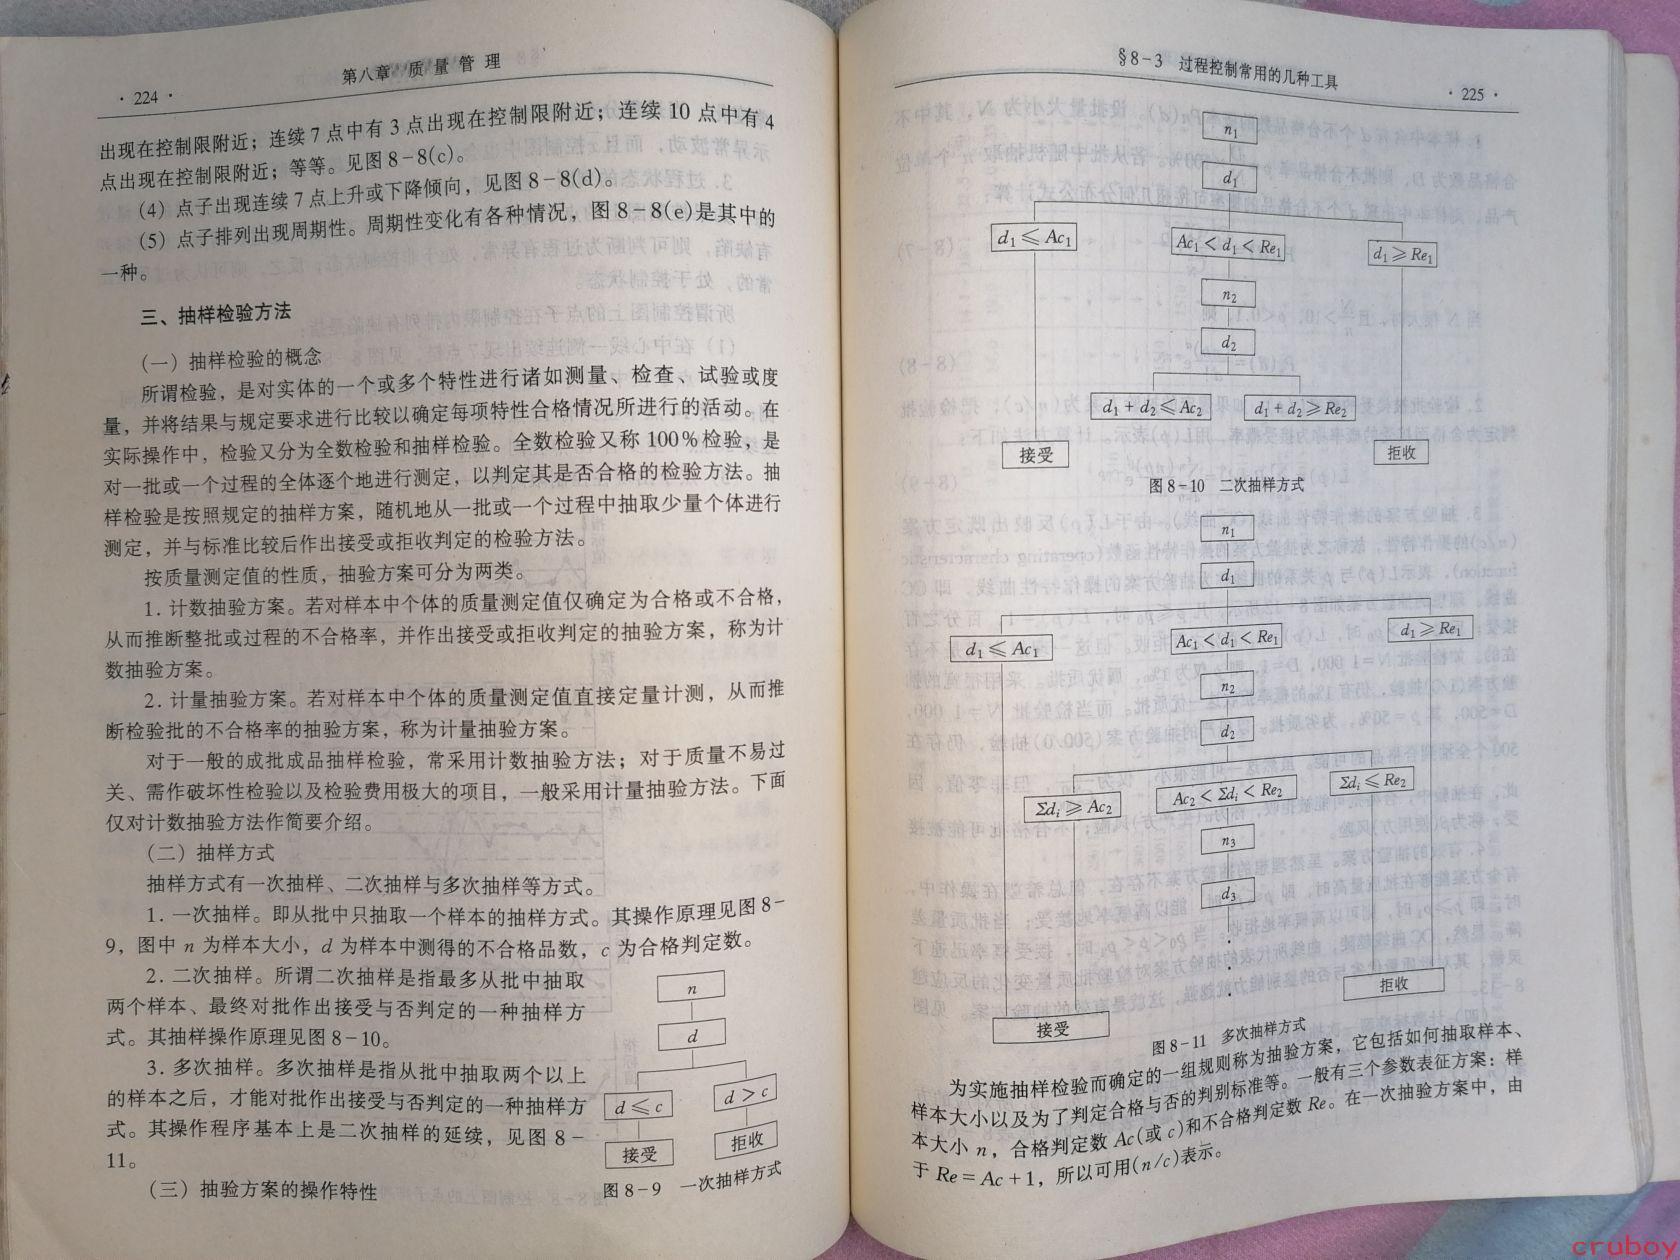 第八章 质量管理
· 224 ·
出现在控制限附近；连续7点中有3点出现在控制限附近；连续10点中有4
点出现在控制限附近；等等。见图8-8(c)。
(4) 点子出现连续7点上升或下降倾向，见图8-8(d)。
(5) 点子排列出现周期性。周期性变化有各种情况，图8-8(e)是其中的
一种。
三、抽样检验方法
(一) 抽样检验的概念
所谓检验，是对实体的一个或多个特性进行诸如测量、检查、试验或度
量，并将结果与规定要求进行比较以确定每项特性合格情况所进行的活动。在
实际操作中，检验又分为全数检验和抽样检验。全数检验又称100%检验，是
对一批或一个过程的全体逐个地进行测定，以判定其是否合格的检验方法。抽
样检验是按照规定的抽样方案，随机地从一批或一个过程中抽取少量个体进行
测定，并与标准比较后作出接受或拒收判定的检验方法。
按质量测定值的性质，抽验方案可分为两类。
1. 计数抽验方案。若对样本中个体的质量测定值仅确定为合格或不合格，
从而推断整批或过程的不合格率，并作出接受或拒收判定的抽验方案，称为计
数抽验方案。
2. 计量抽验方案。若对样本中个体的质量测定值直接定量计测，从而推
断检验批的不合格率的抽验方案，称为计量抽验方案。
对于一般的成批成品抽样检验，常采用计数抽验方法；对于质量不易过
关、需作破坏性检验以及检验费用极大的项目，一般采用计量抽验方法。下面
仅对计数抽验方法作简要介绍。
(二) 抽样方式
抽样方式有一次抽样、二次抽样与多次抽样等方式。
1. 一次抽样。即从批中只抽取一个样本的抽样方式。其操作原理见图8-
9，图中 n 为样本大小，d 为样本中测得的不合格品数，c 为合格判定数。
2. 二次抽样。所谓二次抽样是指最多从批中抽取
两个样本、最终对批作出接受与否判定的一种抽样方
式。其抽样操作原理见图8-10。
3. 多次抽样。多次抽样是指从批中抽取两个以上
的样本之后，才能对批作出接受与否判定的一种抽样方
式。其操作程序基本上是二次抽样的延续，见图8-
11。
(三) 抽验方案的操作特性
n
d
d≤c
d>c
接受
拒收
图8-9 一次抽样方式
§8-3 过程控制常用的几种工具
· 225 ·
n₁
d₁
d₁≤Ac₁
Ac₁<d₁<Re₁
d₁≥Re₁
n₂
d₂
d₁+d₂≤Ac₂
d₁+d₂≥Re₂
接受
拒收
图8-10 二次抽样方式
n₁
d₁
d₁≤Ac₁
Ac₁<d₁<Re₁
d₁≥Re₁
n₂
d₂
Σdᵢ≥Ac₂
Ac₂<Σdᵢ<Re₂
Σdᵢ≤Re₂
n₃
d₃
接受
拒收
图8-11 多次抽样方式
为实施抽样检验而确定的一组规则称为抽验方案，它包括如何抽取样本、
样本大小以及为了判定合格与否的判别标准等。一般有三个参数表征方案：样
本大小 n，合格判定数 Ac(或 c)和不合格判定数 Re。在一次抽验方案中，由
于 Re=Ac+1，所以可用(n/c)表示。
cruboy